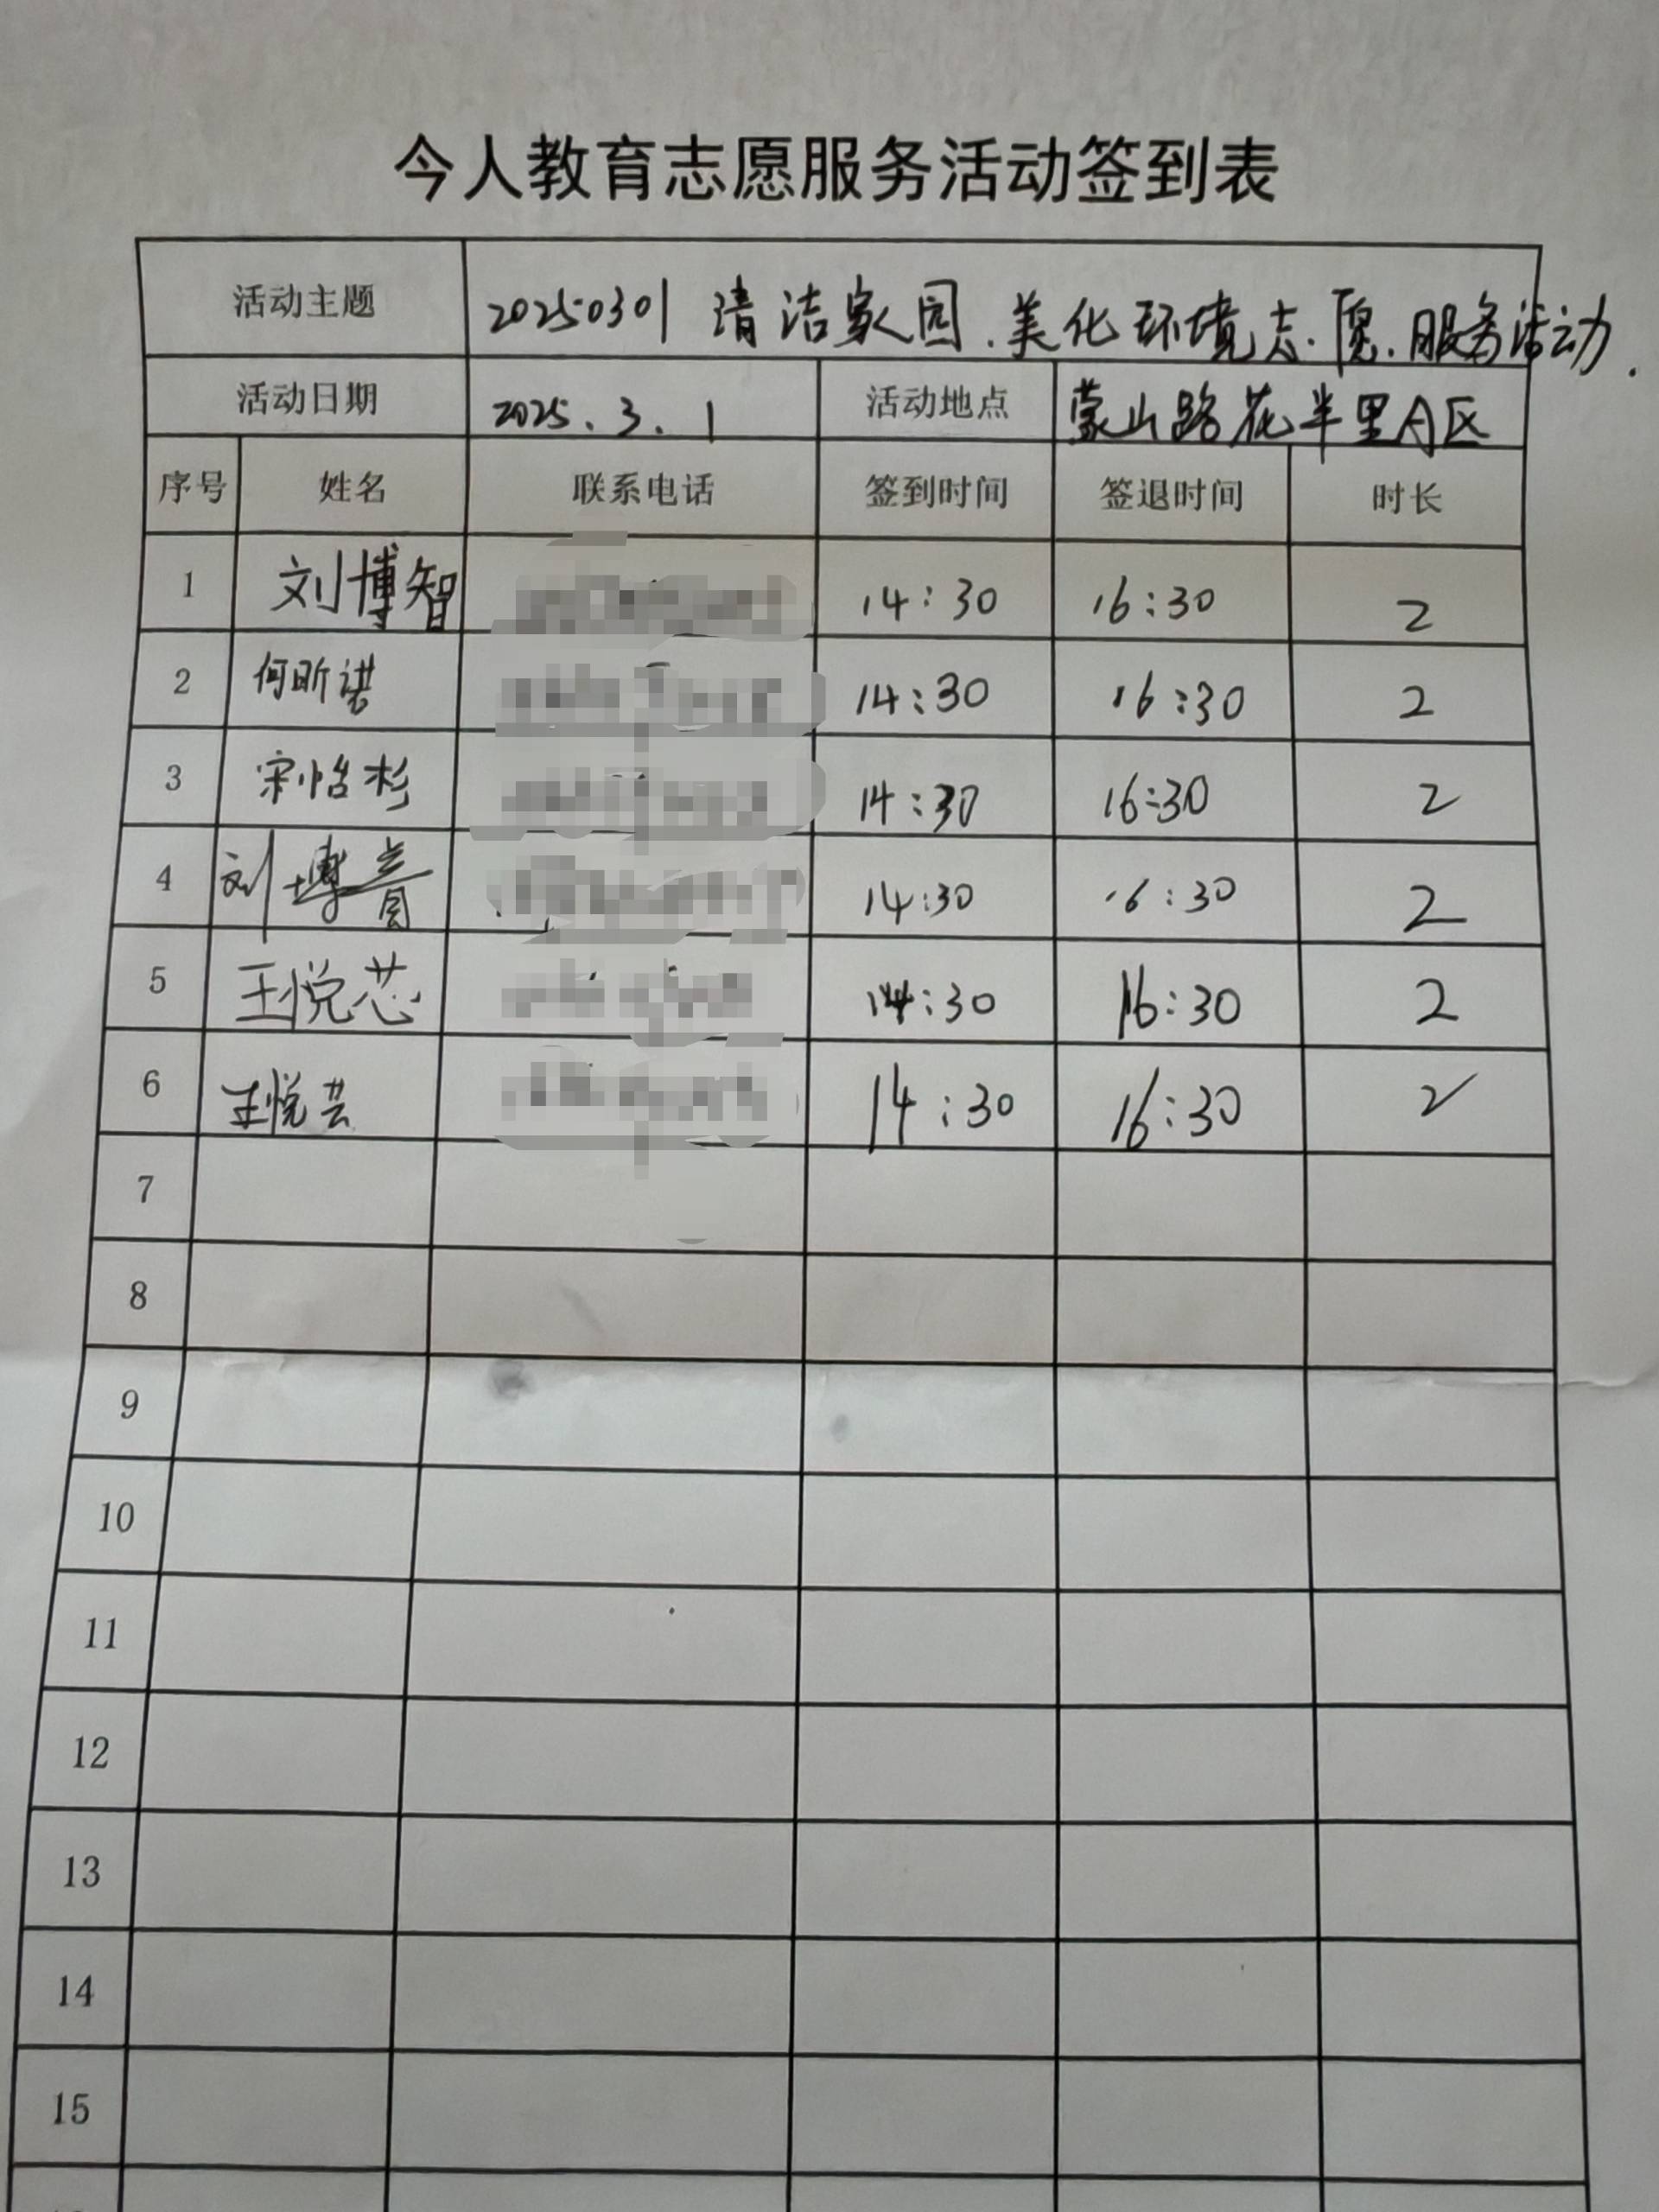 今人教育志愿服务活动签到表
活动主题 20250301 清洁家园.美化环境志愿服务活动.
活动日期 2025.3.1 活动地点 蒙山路花半里A区
序号 姓名 联系电话 签到时间 签退时间 时长
1 刘博智 14:30 16:30 2
2 何昕诺 14:30 16:30 2
3 宋怡杉 14:30 16:30 2
4 刘博 14:30 16:30 2
5 王悦芯 14:30 16:30 2
6 王悦芸 14:30 16:30 2
7
8
9
10
11
12
13
14
15